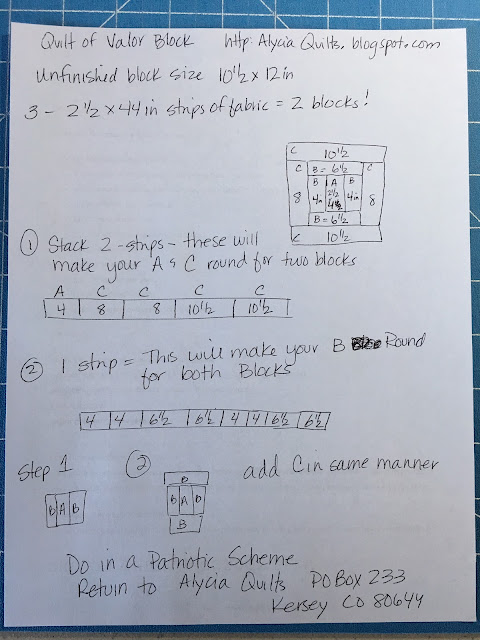 Quilt of Valor Block http: Alycia Quilts. blogspot.com
Unfinished block size 10 1/2 x 12 in
3 - 2 1/2 x 44 in strips of fabric = 2 blocks!
C 10 1/2
C B = 6 1/2 C
B A B
8 4in 2 1/2 4in 8
B = 6 1/2
C 10 1/2
① Stack 2 - strips - these will
make your A & C round for two blocks
A C C C C
4 8 8 10 1/2 10 1/2
② 1 strip = This will make your B Round
for both Blocks
4 4 6 1/2 6 1/2 4 4 6 1/2 6 1/2
Step 1 ② add C in same manner
B
B A B B A B
B
Do in a Patriotic Scheme
Return to Alycia Quilts PO Box 233
Kersey CO 80644